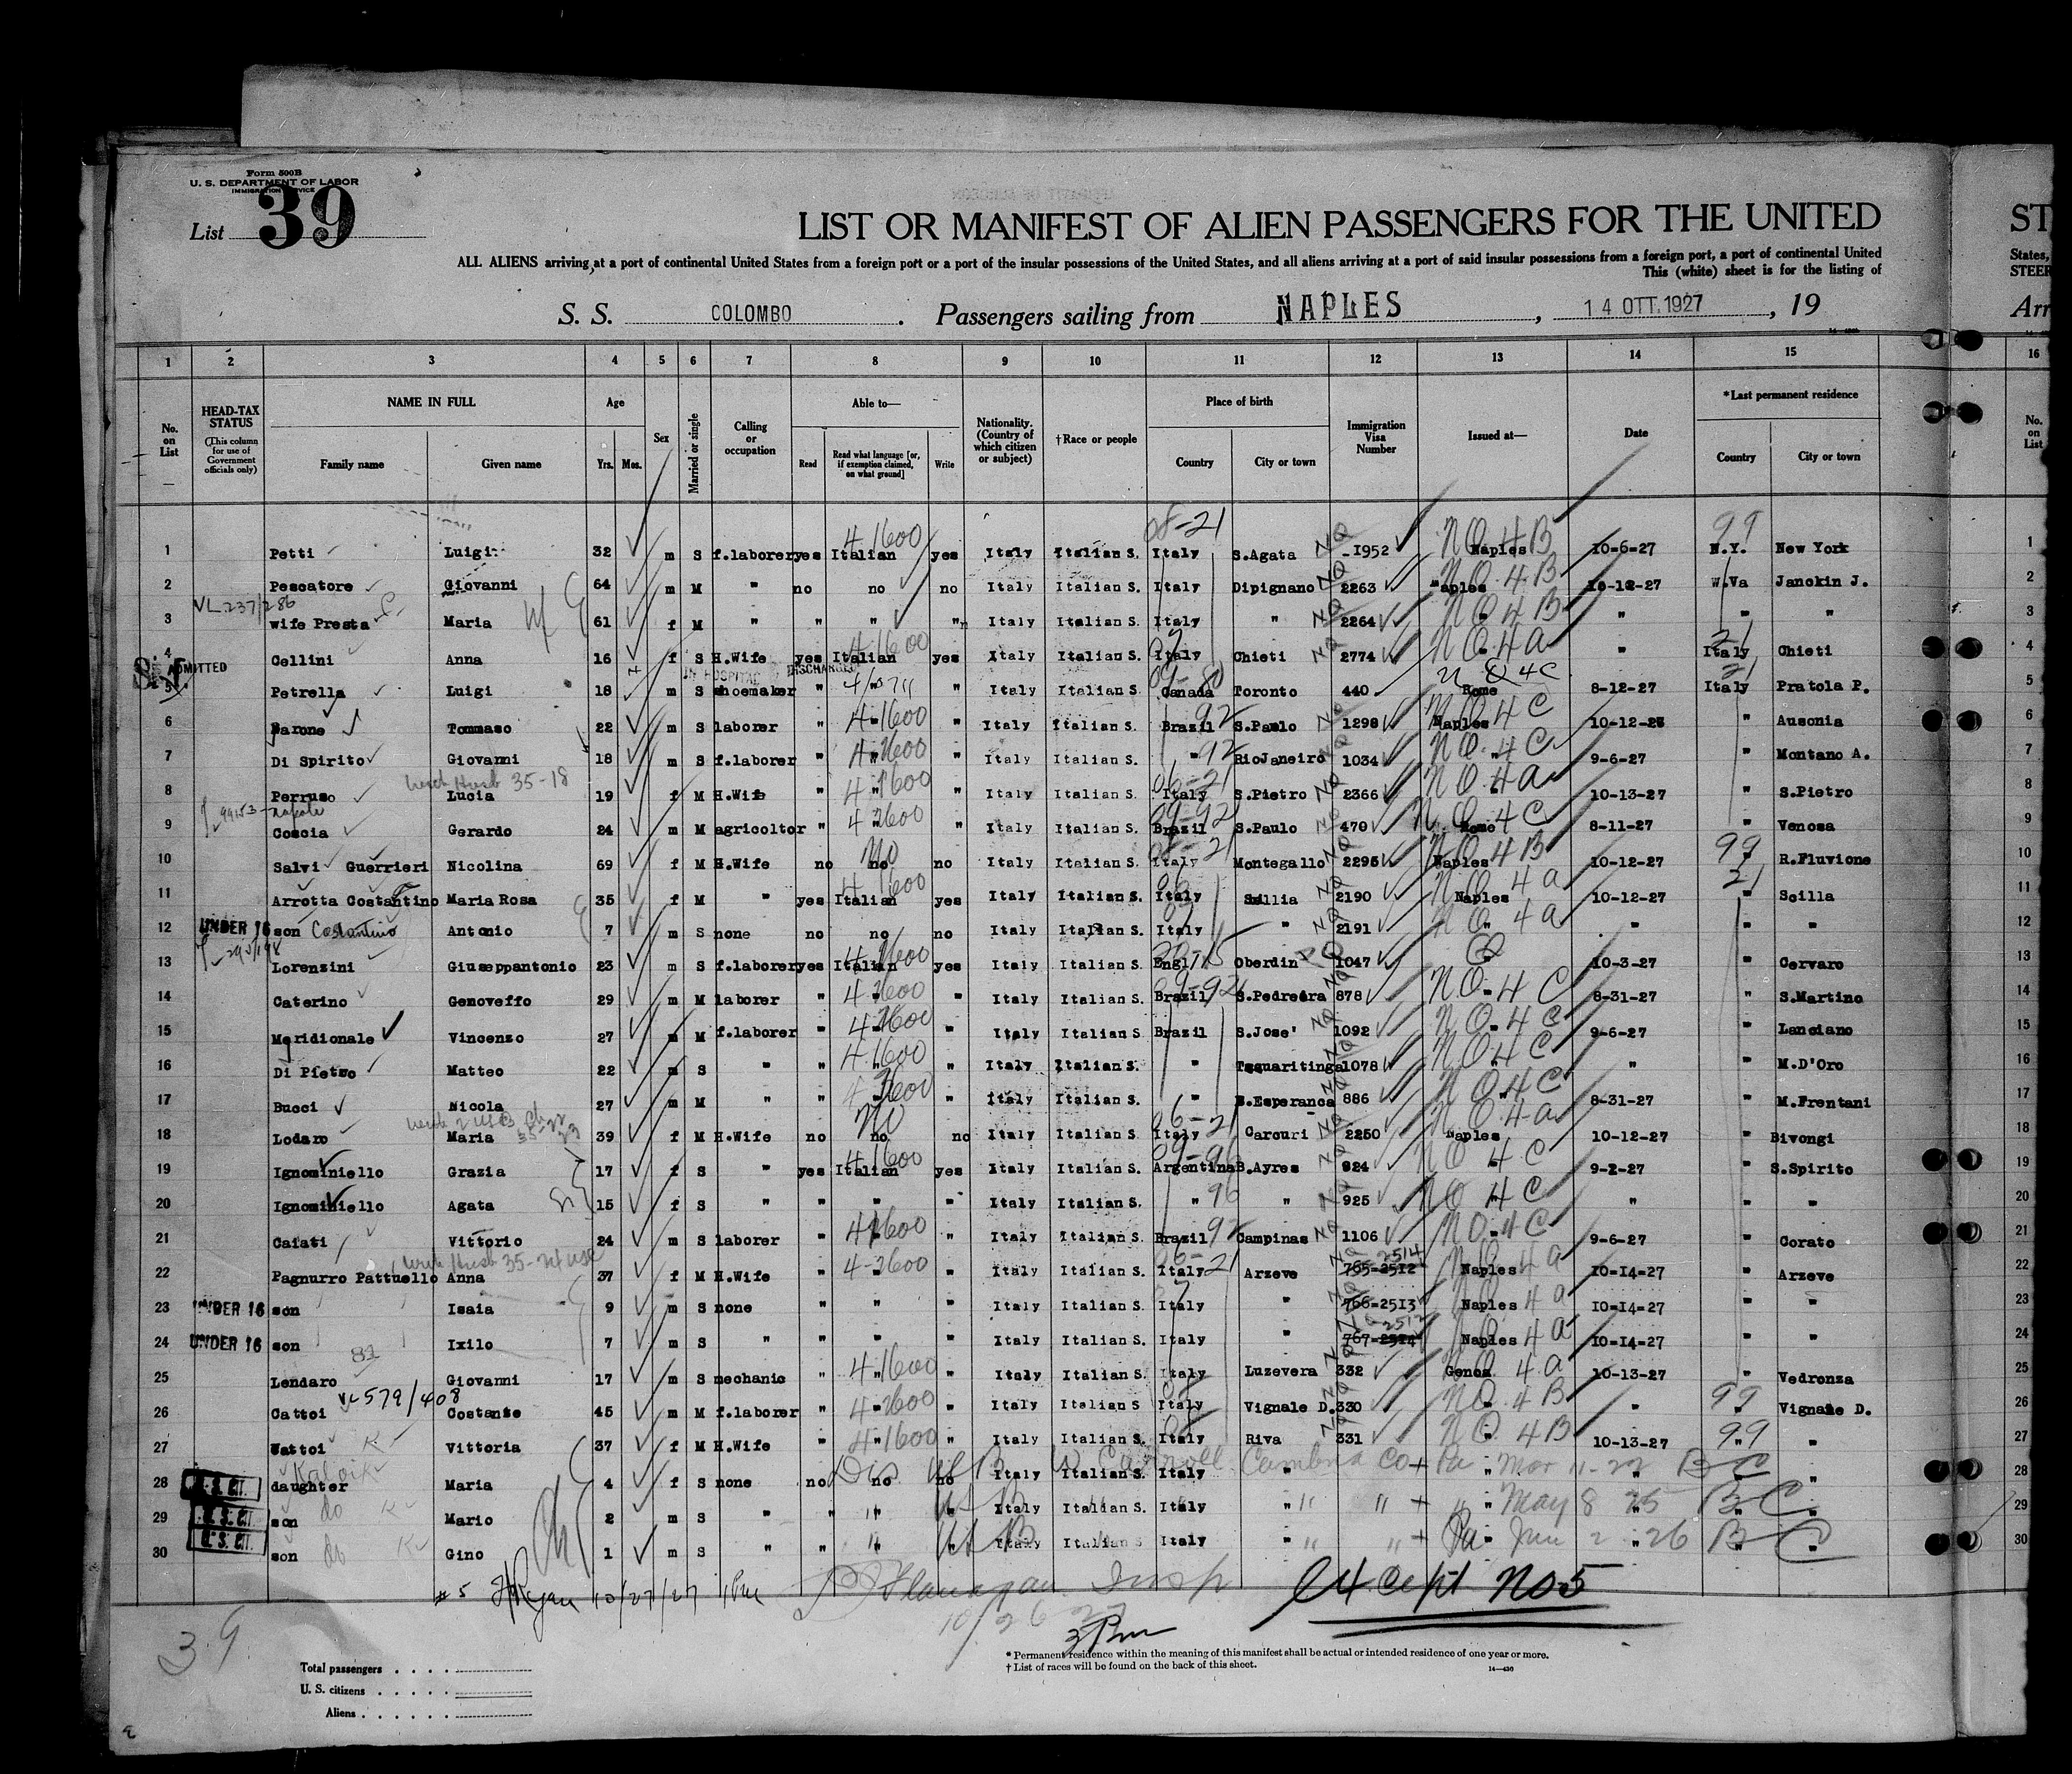 Form 500B
U. S. DEPARTMENT OF LABOR
IMMIGRATION SERVICE
List 39
LIST OR MANIFEST OF ALIEN PASSENGERS FOR THE UNITED
ST
ALL ALIENS arriving at a port of continental United States from a foreign port or a port of the insular possessions of the United States, and all aliens arriving at a port of said insular possessions from a foreign port, a port of continental United
States,
This (white) sheet is for the listing of
STEER
S. S. COLOMBO. Passengers sailing from NAPLES, 14 OTT. 1927, 19
Arr
1 2 3 4 5 6 7 8 9 10 11 12 13 14 15 16
No. on List
HEAD-TAX STATUS (This column for use of Government officials only)
NAME IN FULL Family name Given name
Age Yrs. Mos.
Sex
Married or single
Calling or occupation
Able to— Read Read what language [or, if exemption claimed, on what ground] Write
Nationality. (Country of which citizen or subject)
†Race or people
Place of birth Country City or town
Immigration Visa Number
Issued at—
Date
*Last permanent residence Country City or town
No. on List
1 Petti Luigi 32 m S f.laborer yes Italian 4-1600 yes Italy Italian S. Italy 08-21 S.Agata NQ 1952 Naples NQ 4B 10-6-27 N.Y. 99 New York 1
2 Pescatore Giovanni 64 m M " no no no Italy Italian S. Italy Dipignano NQ 2263 Naples NQ 4B 10-12-27 W.Va Janckin J. 2
VL 237/286
3 wife Presta Maria 61 f M " " " " Italy Italian S. Italy " NQ 2264 " NQ 4B " " " 3
4 Cellini Anna 16 f S H.Wife yes Italian 4-1600 yes Italy Italian S. Italy Chieti NQ 2774 NQ 4a " Italy 21 Chieti 4
ADMITTED IN HOSPITAL DISCHARGED
5 Petrella Luigi 18 m S shoemaker " " Italy Italian S. Canada Toronto 440 Rome 8-12-27 Italy Pratola P. 5
6 Barone Tommaso 22 m S laborer " 4-1600 " Italy Italian S. Brazil 92 S.Paulo 1298 Naples NQ 4C 10-12-26 " Ausonia 6
7 Di Spirito Giovanni 18 m S f.laborer " 4-2600 " Italy Italian S. " 92 RioJaneiro 1034 " NQ 4C 9-6-27 " Montano A. 7
8 Perruso Lucia 19 f M H.Wife " 4-1600 " Italy Italian S. Italy 06-21 S.Pietro 2366 " NQ 4a 10-13-27 " S.Pietro 8
9 Coscia Gerardo 24 m M agricoltor " 4-2600 " Italy Italian S. Brazil 09-92 S.Paulo 470 Rome NQ 4C 8-11-27 " Venosa 9
10 Salvi Guerrieri Nicolina 69 f M H.Wife no no no Italy Italian S. Italy 21 Montegallo 2295 Naples NQ 4B 10-12-27 " 99 R.Fluvione 10
11 Arrotta Costantino Maria Rosa 35 f M " yes Italian 4-1600 yes Italy Italian S. Italy 2190 Naples NQ 4a 10-12-27 " 21 Scilla 11
12 UNDER 16 son Costantino Antonio 7 m S none no no no Italy Italian S. Italy " 2191 " NQ 4a " " " 12
13 Lorenzini Giuseppantonio 23 m S f.laborer yes Italian 4-1600 yes Italy Italian S. Engl. Oberdin 1047 " 10-3-27 " Cervaro 13
14 Caterino Genoveffo 29 m M laborer " 4-2600 " Italy Italian S. Brazil 09-92 S.Pedreira 878 " NQ 4C 8-31-27 " S.Martino 14
15 Meridionale Vincenzo 27 m M f.laborer " 4-2600 " Italy Italian S. Brazil S.Jose' 1092 " NQ 4C 9-6-27 " Lanciano 15
16 Di Pietro Matteo 22 m S " " 4-1600 " Italy Italian S. " Tequaritinga 1078 " NQ 4C " " M.D'Oro 16
17 Bucci Nicola 27 m M " " 4-3600 " Italy Italian S. " B.Esperanca 886 " NQ 4C 8-31-27 " M.Frentani 17
18 Lodaro Maria 39 f M H.Wife no no no Italy Italian S. Italy 06-21 Carouri 2250 Naples NQ 4a 10-12-27 " Bivongi 18
19 Ignominiello Grazia 17 f S " yes Italian 4-1600 yes Italy Italian S. Argentina 09-96 B.Ayres 924 " NQ 4C 9-2-27 " S.Spirito 19
20 Ignominiello Agata 15 f S " " " " Italy Italian S. " 96 " 925 " NQ 4C " " " 20
21 Cafati Vittorio 24 m S laborer " 4-1600 " Italy Italian S. Brazil 92 Campinas 1106 " NQ 4C 9-6-27 " Corato 21
22 Pagnurro Pattuello Anna 37 f M H.Wife " 4-2600 " Italy Italian S. Italy 06-21 Arzeve 765-2512 2514 Naples NQ 4a 10-14-27 " Arzeve 22
23 UNDER 16 son Isaia 9 m S none " " " Italy Italian S. Italy " 766-2513 Naples NQ 4a 10-14-27 " " 23
24 UNDER 16 son Ixilo 7 m S " " " " Italy Italian S. Italy " 767-2514 2512 Naples NQ 4a 10-14-27 " " 24
25 Lendaro Giovanni 17 m S mechanic " 4-1600 " Italy Italian S. Italy Luzevera 332 Genoa NQ 4a 10-13-27 " Vedronza 25
VL 579/408
26 Cattoi Costante 45 m M f.laborer " 4-2600 " Italy Italian S. Italy Vignale D. 330 " NQ 4B " " 99 Vignale D. 26
27 Wattoi Vittoria 37 f M H.Wife " 4-1600 " Italy Italian S. Italy Riva 331 " NQ 4B 10-13-27 " 99 " 27
28 U.S. CIT. daughter Maria 4 f S none no no no Italy Italian S. Italy " Cambria Co Pa Mar 11-22 BC " 28
29 U.S. CIT. son do Mario 2 m S " " " Italy Italian S. Italy " " May 8 25 BC " 29
30 U.S. CIT. son do Gino 1 m S " " " Italy Italian S. Italy " " Pa Jun 2 26 BC " 30
#5 Ryan 10/27/27 1 Pm Flanagan Insp except No 5
10/26 27
3 Pm
39
Total passengers
U. S. citizens
Aliens
* Permanent residence within the meaning of this manifest shall be actual or intended residence of one year or more.
† List of races will be found on the back of this sheet.
14—430